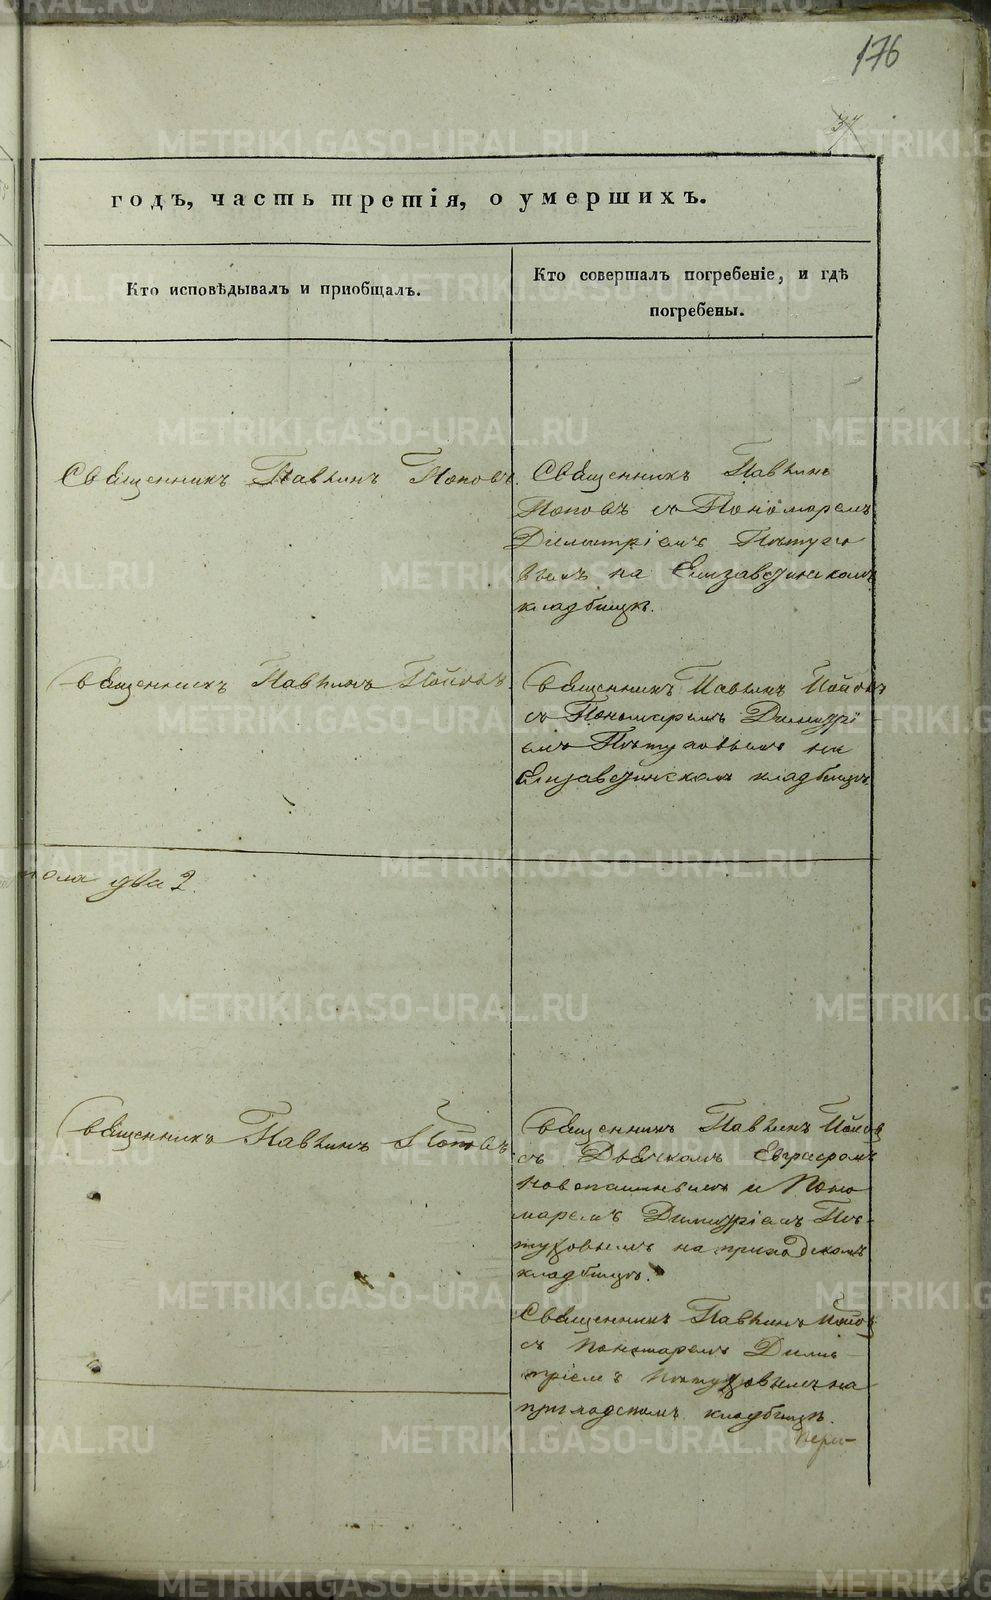 176
37
годъ, часть третія, о умершихъ.
Кто исповѣдывалъ и пріобщалъ.
Кто совершалъ погребеніе, и гдѣ
погребены.
Священникъ Павлинъ Поповъ.
Священникъ Павлинъ
Поповъ съ Пономаремъ
Димитріемъ Пѣтухо
вымъ на Елизаветинскомъ
кладбищѣ.
Священникъ Павлинъ Поповъ.
Священникъ Павлинъ Поповъ
съ Пономаремъ Димитрі
емъ Пѣтуховымъ на
Елизаветинскомъ кладбищѣ
пола два 2.
Священникъ Павлинъ Поповъ
Священникъ Павлинъ Поповъ
съ Дьячкомъ Евграфомъ
и Поно
маремъ Димитріемъ Пѣ-
туховымъ на приходскомъ
кладбищѣ.
Священникъ Павлинъ Поповъ
съ Пономаремъ Димит
тріемъ Пѣтуховымъ на
приходскомъ кладбищѣ.
METRIKI.GASO-URAL.RU